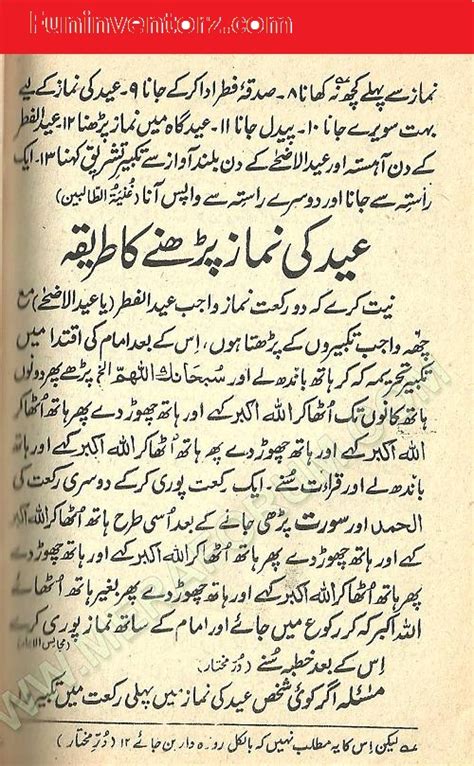 Funinventorz.com
نماز سے پہلے کچھ نہ کھانا ۸۔ صدقۂ فطر ادا کرکے جانا ۹۔ عید کی نماز کے لیے
بہت سویرے جانا ۱۰۔ پیدل جانا ۱۱۔ عید گاہ میں نماز پڑھنا ۱۲ عید الفطر
کے دن آہستہ اور عید الاضحٰے کے دن بلند آواز سے تکبیر تشریق کہنا ۱۳۔ ایک
راستہ سے جانا اور دوسرے راستہ سے واپس آنا (غُنیۃُ الطالبین)
عید کی نماز پڑھنے کا طریقہ
نیت کرے کہ دو رکعت نماز واجب عید الفطر (یا عید الاضحٰے) مع
چھ واجب تکبیروں کے پڑھتا ہوں، اِس کے بعد امام کی اقتدا میں
تکبیر تحریمہ کہہ کر ہاتھ باندھ لے اور سُبحانك اللّٰھمّ الخ پڑھے پھر دونوں
ہاتھ کانوں تک اُٹھا کر اللہ اکبر کہے اور ہاتھ چھوڑ دے پھر ہاتھ اُٹھا کر
اللہ اکبر کہے اور ہاتھ چھوڑ دے پھر ہاتھ اُٹھا کر اللہ اکبر کہے اور ہاتھ
باندھ لے اور قراءت سُنے۔ ایک رکعت پوری کر کے دوسری رکعت کی
الحمد اور سورت پڑھی جانے کے بعد اُسی طرح ہاتھ اُٹھا کر اللہ اکبر
کہے اور ہاتھ چھوڑ دے پھر ہاتھ اُٹھا کر اللہ اکبر کہے اور ہاتھ چھوڑ دے
پھر ہاتھ اُٹھا کر اللہ اکبر کہے اور ہاتھ چھوڑ دے پھر بغیر ہاتھ اُٹھائے
اللہ اکبر کہہ کر رکوع میں جائے اور امام کے ساتھ نماز پوری کرے
اِس کے بعد خطبہ سُنے (دُرِّ مختار)
مسئلہ اگر کوئی شخص عید کی نماز میں پہلی رکعت میں تکبیر
لیکن اِس کا یہ مطلب نہیں کہ بالکل روزہ دار بن جائے ۱۲ (دُرِّ مختار)